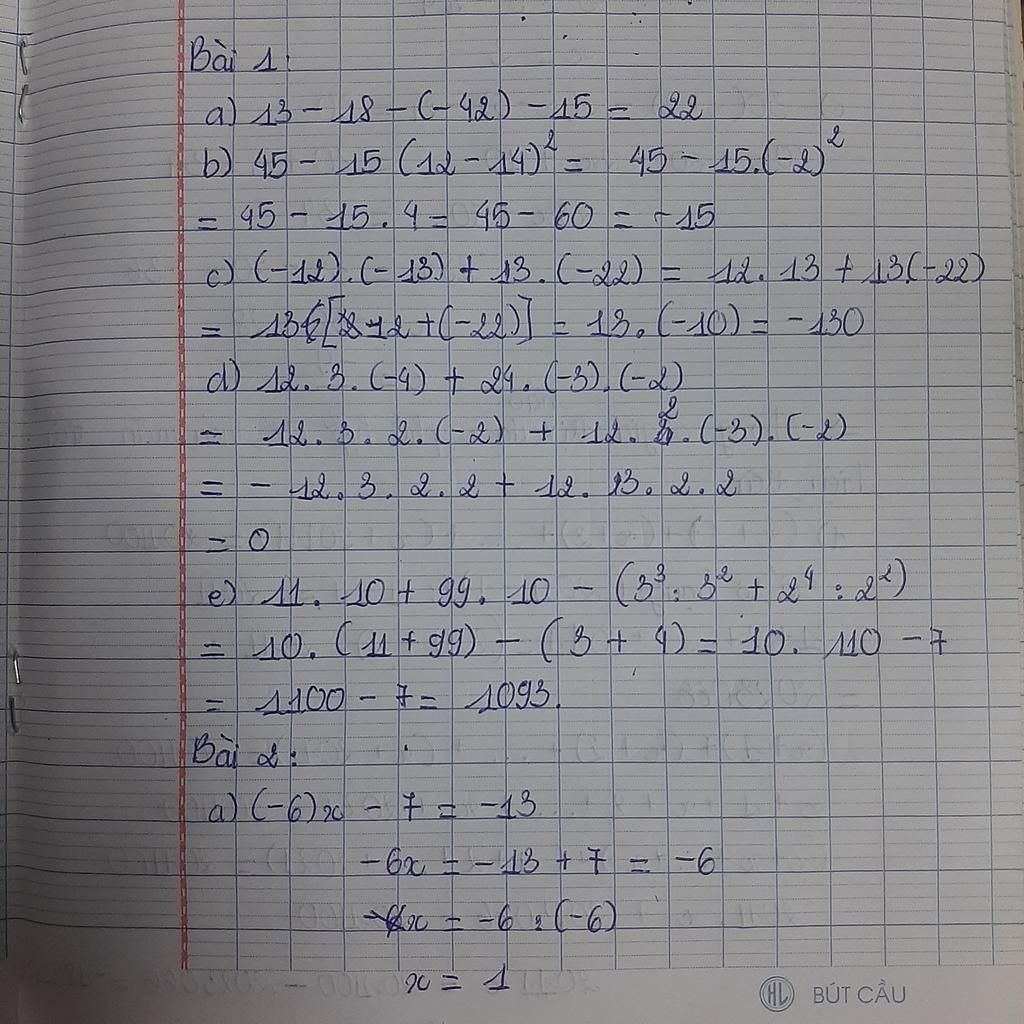 Bài 1:
a) 13 - 18 - (-42) - 15 = 22
b) 45 - 15 (12 - 14)² = 45 - 15.(-2)²
= 45 - 15 . 4 = 45 - 60 = -15
c) (-12).(-13) + 13.(-22) = 12.13 + 13(-22)
= 13 [12 + (-22)] = 13.(-10) = -130
d) 12.3.(-4) + 24.(-3).(-2)
= 12.3.2.(-2) + 12.2.(-3).(-2)
= - 12.3.2.2 + 12.3.2.2
= 0
e) 11.10 + 99.10 - (3³ : 3² + 2⁴ : 2²)
= 10.(11 + 99) - (3 + 4) = 10. 110 - 7
= 1100 - 7 = 1093.
Bài 2:
a) (-6)x - 7 = -13
-6x = -13 + 7 = -6
x = -6 : (-6)
x = 1
HL BÚT CẦU